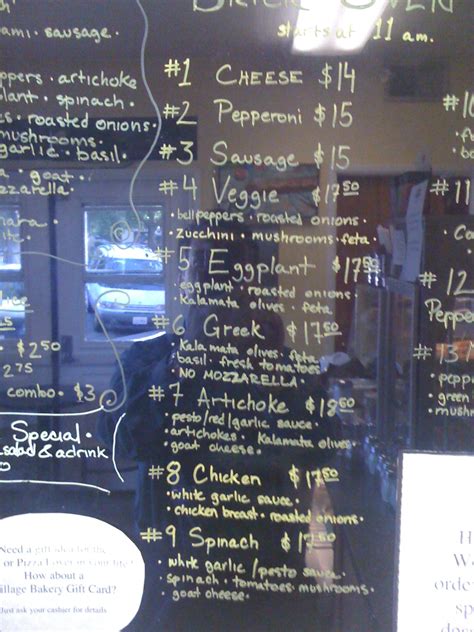 Brick Oven
starts at 11 am.
ami. sausage.
#1 CHEESE $14
#2 Pepperoni $15
#3 Sausage $15
#4 Veggie $17.50
bellpeppers · roasted onions ·
· zucchini · mushrooms · feta
#5 Eggplant $17.50
eggplant · roasted onions
Kalamata olives · feta
#6 Greek $17.50
Kalamata olives · feta
· basil · fresh tomatoes
· NO MOZZARELLA ·
#7 Artichoke $18.50
· pesto/red/garlic sauce ·
· artichokes · Kalamata olives ·
· goat cheese ·
#8 Chicken $17.50
· white garlic sauce ·
· chicken breast · roasted onions.
#9 Spinach $17.50
· white garlic / pesto sauce
· spinach · tomatoes · mushrooms ·
· goat cheese ·
ppers · artichoke
plant · spinach ·
· roasted onions ·
mushrooms ·
garlic · basil ·
a · goat
zzarella ·
$2.50
2.75
combo · $3
Special ·
salad & a drink
Need a gift idea for the
or Pizza Lover in your life?
How about a
illage Bakery Gift Card?
Just ask your cashier for details
#11
# 12
#13
pepper
green
mush
orde